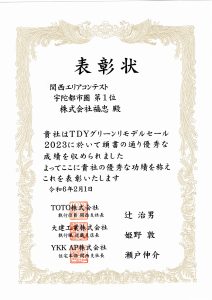 表彰状
関西エリアコンテスト
宇陀都市圏 第1位
株式会社福忠 殿
貴社はTDYグリーンリモデルセール
2023に於いて頭書の通り優秀な
成績を収められました
よってここに貴社の優秀な功績を称え
これを表彰いたします
令和6年2月1日
TOTO株式会社
執行役員 関西支社長 辻 治男
大建工業株式会社
姫野 敦
YKK AP株式会社
住宅本部 関西支社長 瀬戸伸介